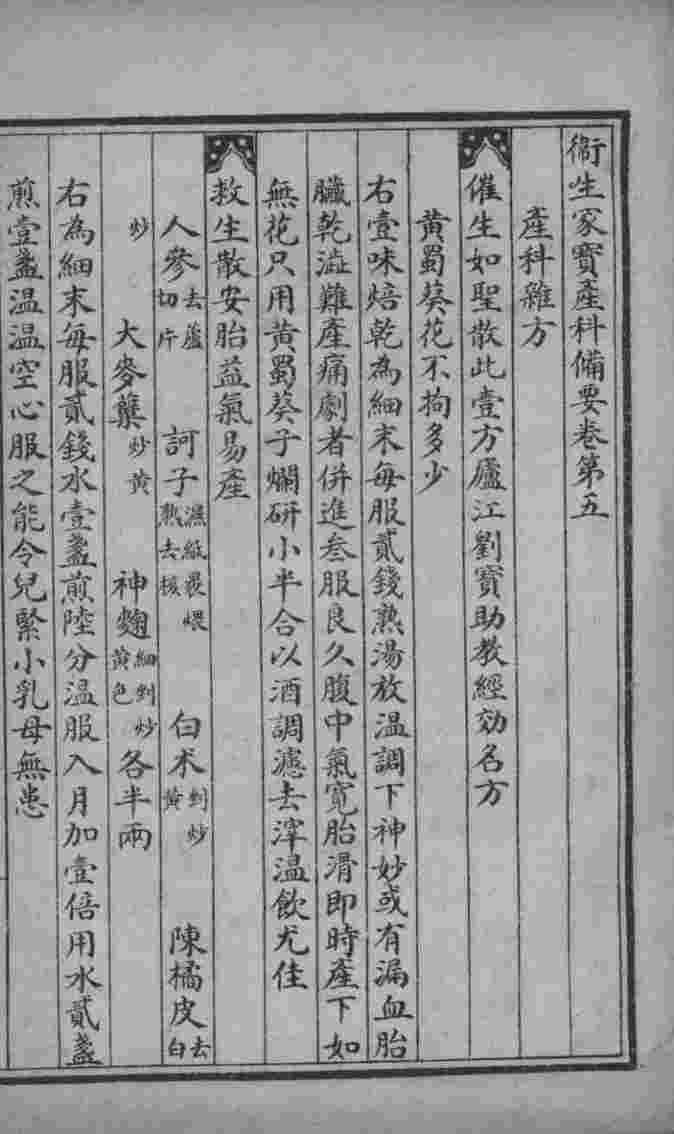 衞生家寶產科備要卷第五
產科雜方
催生如聖散此壹方廬江劉寶助教經効名方
黄蜀葵花不拘多少
右壹味焙乾為細末每服貳錢熟湯放温調下神妙或有漏血胎
臟乾澁難產痛劇者併進叁服良久腹中氣寛胎滑即時產下如
無花只用黄蜀葵子爛研小半合以酒調濾去滓温飲尤佳
救生散安胎益氣易產
人參去蘆切片 訶子濕紙裹煨熟去核 白术剉炒黄 陳橘皮去白
炒 大麥蘖炒黄 神麴細剉炒黄色 各半兩
右為細末每服貳錢水壹盞煎陸分温服入月加壹倍用水貳盞
煎壹盞温温空心服之能令兒緊小乳母無恙